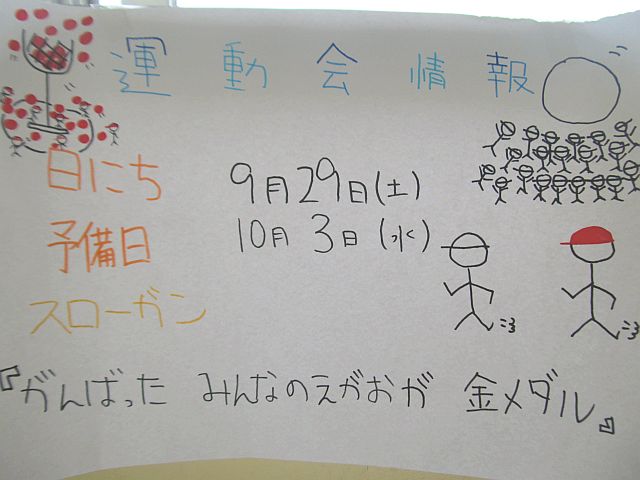 運動会情報
日にち 9月29日(土)
予備日 10月3日(水)
スローガン
『がんばった みんなのえがおが 金メダル』